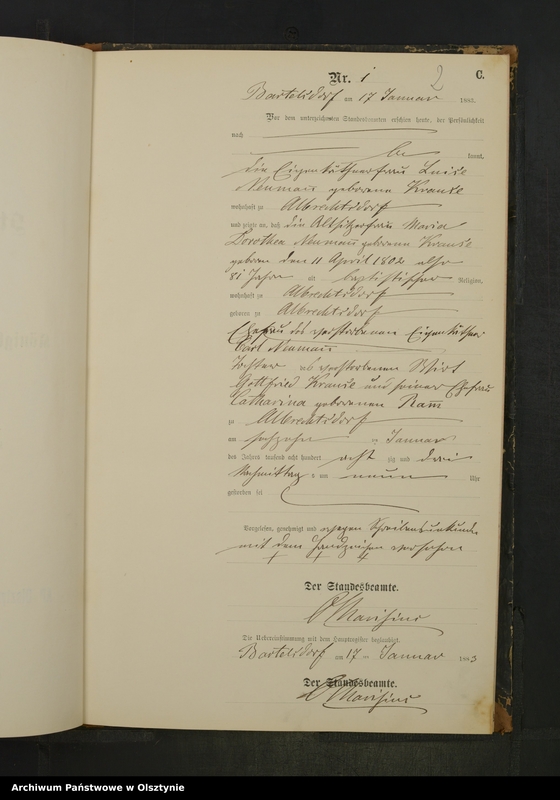 Nr. 1
2
C.
Bartelsdorf am 17 Januar 1883.
Vor dem unterzeichneten Standesbeamten erschien heute, der Persönlichkeit
nach
be kannt,
die Eigenkäthnerfrau Luise
Neumann geborene Krause
wohnhaft zu Albrechtsdorf
und zeigte an, daß die Altsitzerfrau Maria
Dorothea Neumann geborene Krause
geboren den 11 April 1802 also
81 Jahre alt baptistischer Religion,
wohnhaft zu Albrechtsdorf
geboren zu Albrechtsdorf
Ehefrau des verstorbenen Eigenkäthner
Carl Neumann
Tochter des verstorbenen Wirt
Gottfried Krause und seiner Ehefrau
Catharina geborenen Ram
zu Albrechtsdorf
am sechzehn Januar
des Jahres tausend acht hundert acht zig und drei
Nachmittag s um neun Uhr
gestorben sei
Vorgelesen, genehmigt und wegen Schreibensunkunde
mit dem Handzeichen versehen
+ + +
Der Standesbeamte.
Die Uebereinstimmung mit dem Hauptregister beglaubigt.
Bartelsdorf am 17 ten Januar 1883
Der Standesbeamte.
Archiwum Państwowe w Olsztynie